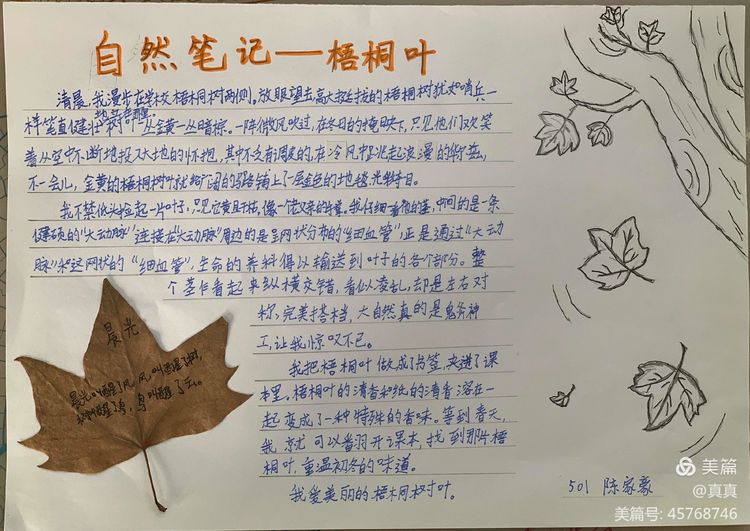 自然笔记——梧桐叶
清晨。我漫步在学校梧桐树两侧,放眼望去高大挺拔的梧桐树犹如哨兵一
样笔直健壮。树叶一丛金黄一丛暗棕。一阵微风吹过,在冬日的掩映下,只见他们欢笑
着从空中不断地投入大地的怀抱,其中不乏有调皮的,在冷风中跳起浪漫的华尔兹,
不一会儿,金黄的梧桐树叶就给广阔的马路铺上了一层金色的地毯光鲜夺目。
我不禁低头捡起一片叶子,只见它黄且干枯,像一位父亲的手掌。我仔细一看他的茎,中间的是一条
健硕的“大动脉”连接在“大动脉”周边的是呈网状分布的“细血管”,正是通过“大动
脉”和这网状的“细血管”,生命的养料得以输送到叶子的各个部分。整
个茎乍看起来纵横交错,看似凌乱,却是左右对
称,完美搭档,大自然真的是鬼斧神
工,让我惊叹不已。
我把梧桐叶做成了书签,夹进了课
本里。梧桐叶的清香和纸的清香溶在一
起变成了一种特殊的香味。等到春天,
我就可以翻开课本,找到那片梧
桐叶,重温初冬的味道。
我爱美丽的梧桐树叶。
晨光
晨光叫醒了风,风叫醒了树,
树叫醒了鸟,鸟叫醒了工。
501 陈家豪
美篇
@真真
美篇号:45768746